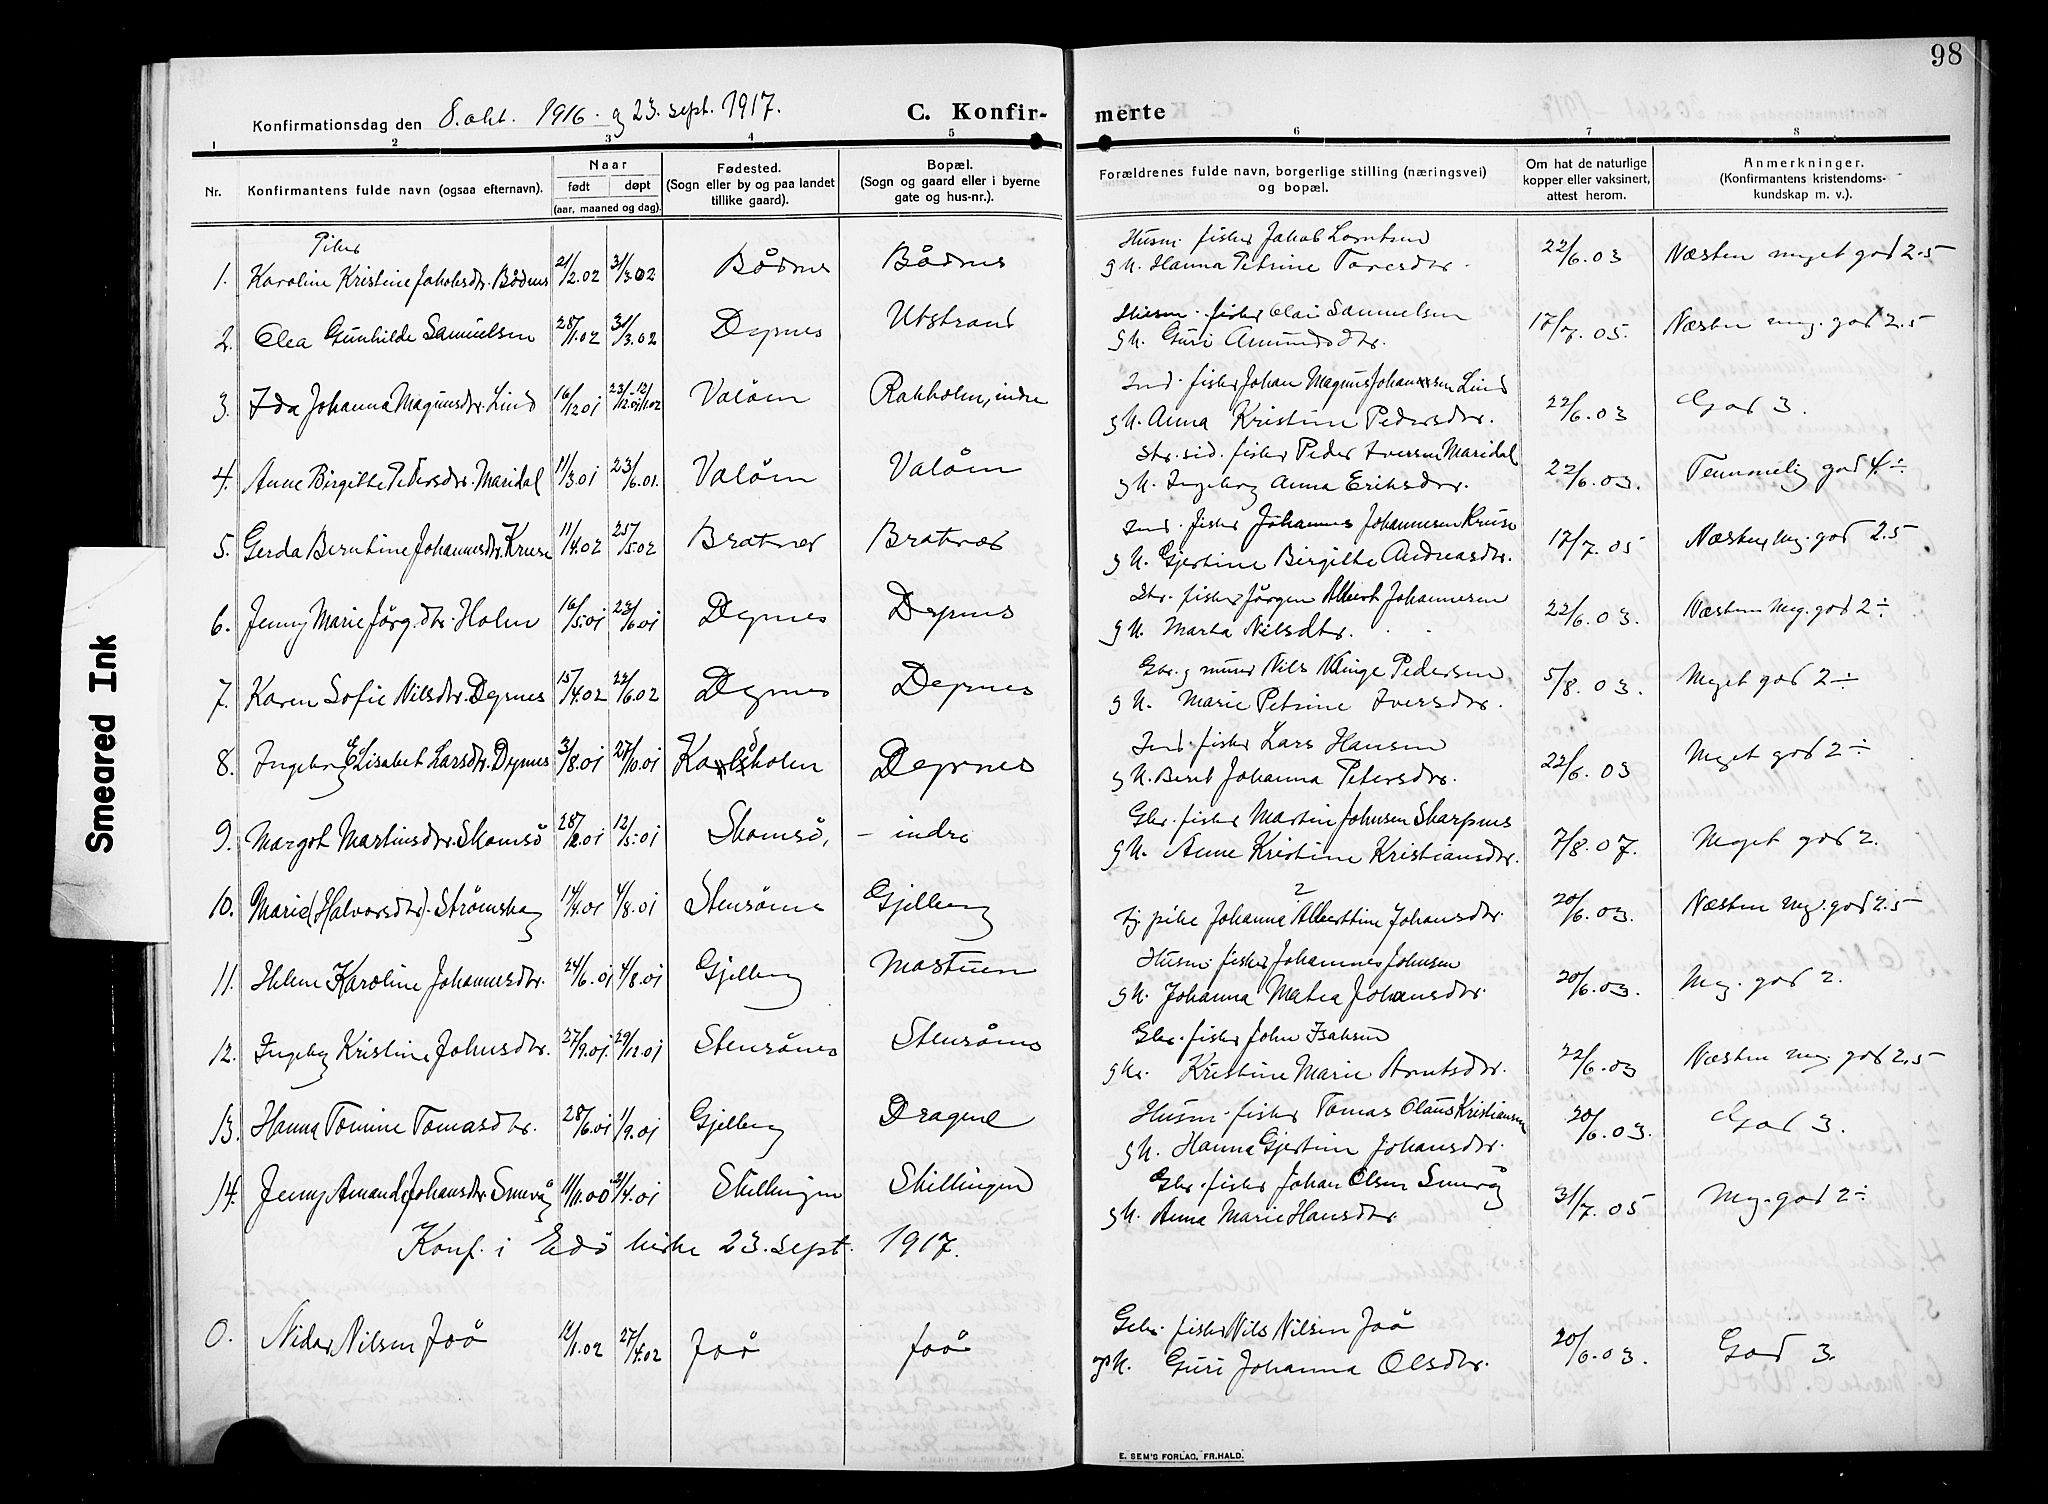 98
Konfirmationsdag den 8. okt. 1916. og 23. sept. 1917.
C. Konfir- merte
1 2 3 4 5 6 7 8
Nr.
Konfirmantens fulde navn (ogsaa efternavn).
Naar
født døpt
(aar, maaned og dag).
Fødested.
(Sogn eller by og paa landet
tillike gaard).
Bopæl.
(Sogn og gaard eller i byerne
gate og hus-nr.).
Forældrenes fulde navn, borgerlige stilling (næringsvei)
og bopæl.
Om hat de naturlige
kopper eller vaksinert,
attest herom.
Anmerkninger.
(Konfirmantens kristendoms-
kundskap m. v.).
Piker
Husm. fisker Jakob Lorntsen
1. Karoline Kristine Jakobsdtr. Bødnes 21/2.02 31/3.02 Bødnes Bødnes 22/6.03 Næsten meget god 2.5
g H. Hanna Petrine Taresdtr.
Husm. fisker Olai Samuelsen
2. Olea Gunhilde Samuelsen 28/1.02 31/3.02 Dyrnes Utstrand 17/7.05. Næsten meg. god 2.5
g H. Guri Amundsdtr.
Ind. fisker Johan Magnus Johannesen Lind
3. Ida Johanna Magnusdtr. Lind 16/12.01 23/12.01 - 12/1.02 Valøen Rakholm, indre 22/6.03 God 3.
g H. Anna Kristine Pedersdtr.
Str. sid. fisker Peder Iversen Maridal
4. Anne Birgithe Petersdtr. Maridal 11/3.01 23/6.01. Valøen Valøen 22/6.03. Temmelig god 4 ÷
g H. Ingeborg Anna Eriksdtr.
Ind. fisker Johannes Johannesen Kruse
5. Gerda Berntine Johannesdtr. Kruse 11/4.02 25/5.02 Bratnes Bratnes 17/7.05 Næsten mg. god 2.5
g H. Gjertine Birgithe Andreasdtr.
Str. fisker Jørgen Albert Johannesen
6. Jenny Marie Jørg.dtr. Holm 16/5.01 23/6.01 Dyrnes Dyrnes 22/6.03. Næsten meg. god 2 ÷
g H. Marta Nilsdtr.
Gbr. g murer Nils Vinge Pedersen
7. Karen Sofie Nilsdtr. Dyrnes 15/4.02 22/6.02 Dyrnes Dyrnes 5/8.03. Meget god 2 ÷
g H. Marie Petrine Iversdtr.
Ind. fisker Lars Hansen
8. Ingeborg Elisabet Larsdtr. Dyrnes 3/8.01 27/10.01 Karlsholm Dyrnes 22/6.03 Meget god 2 ÷
g H. Beret Johanna Petersdtr.
Gbr. fisker Martin Johnsen Skarpnes
9. Margot Martinsdtr. Skomsø 28/2.01 12/5.01 Skomsø, - indre 7/8.07. Meget god 2.
g H. Anne Kristine Kristiansdtr.
10. Marie (Halvorsdtr). Strømskag 14/4.01 4/8.01 Stensønes Gjelberg 20/6.03. Næsten mg. god 2.5
2
tj. pike Johanna Alberttine Johansdtr.
Husm. fisker Johannes Johnsen
11. Helene Karoline Johannesdtr. 24/6.01 4/8.01 Gjelberg Mostuen 20/6.03. Mg. god 2.
g H. Johanna Matea Johansdtr.
Gbr. fisker John Isaksen
12. Ingebg Kristine Johnsdtr. 27/9.01 29/12.01 Stensønes Stensønes 22/6.03 Næsten mg god 2.5
g Hr. Kristine Marie Arntsdtr.
Husm. fisker Tomas Claus Kristiansen
13. Hanna Tomine Tomasdtr. 28/6.01 1/9.01 Gjelberg Dragnel 20/6.03. God 3.
g H. Hanna Gjertine Johansdtr.
Gbr. fisker Johan Olsen Smevåg
14. Jenny Amanda Johansdtr. Smevåg 11/11.00 21/4.01 Skillingen Skillingen 31/7.05 Mg. god 2 ÷
g H. Anna Marie Hansdtr
Konf. i Edø kirke 23. sept. 1917.
Gbr. fisker Nils Nilsen Joø
0. Nidar Nilsen Joø 12/1.02 27/4.02 Joø Joø 20/6.03. God 3.
og H. Guri Johanna Olsdtr.
E. SEM'S FORLAG, FR.HALD.
Smeared Ink